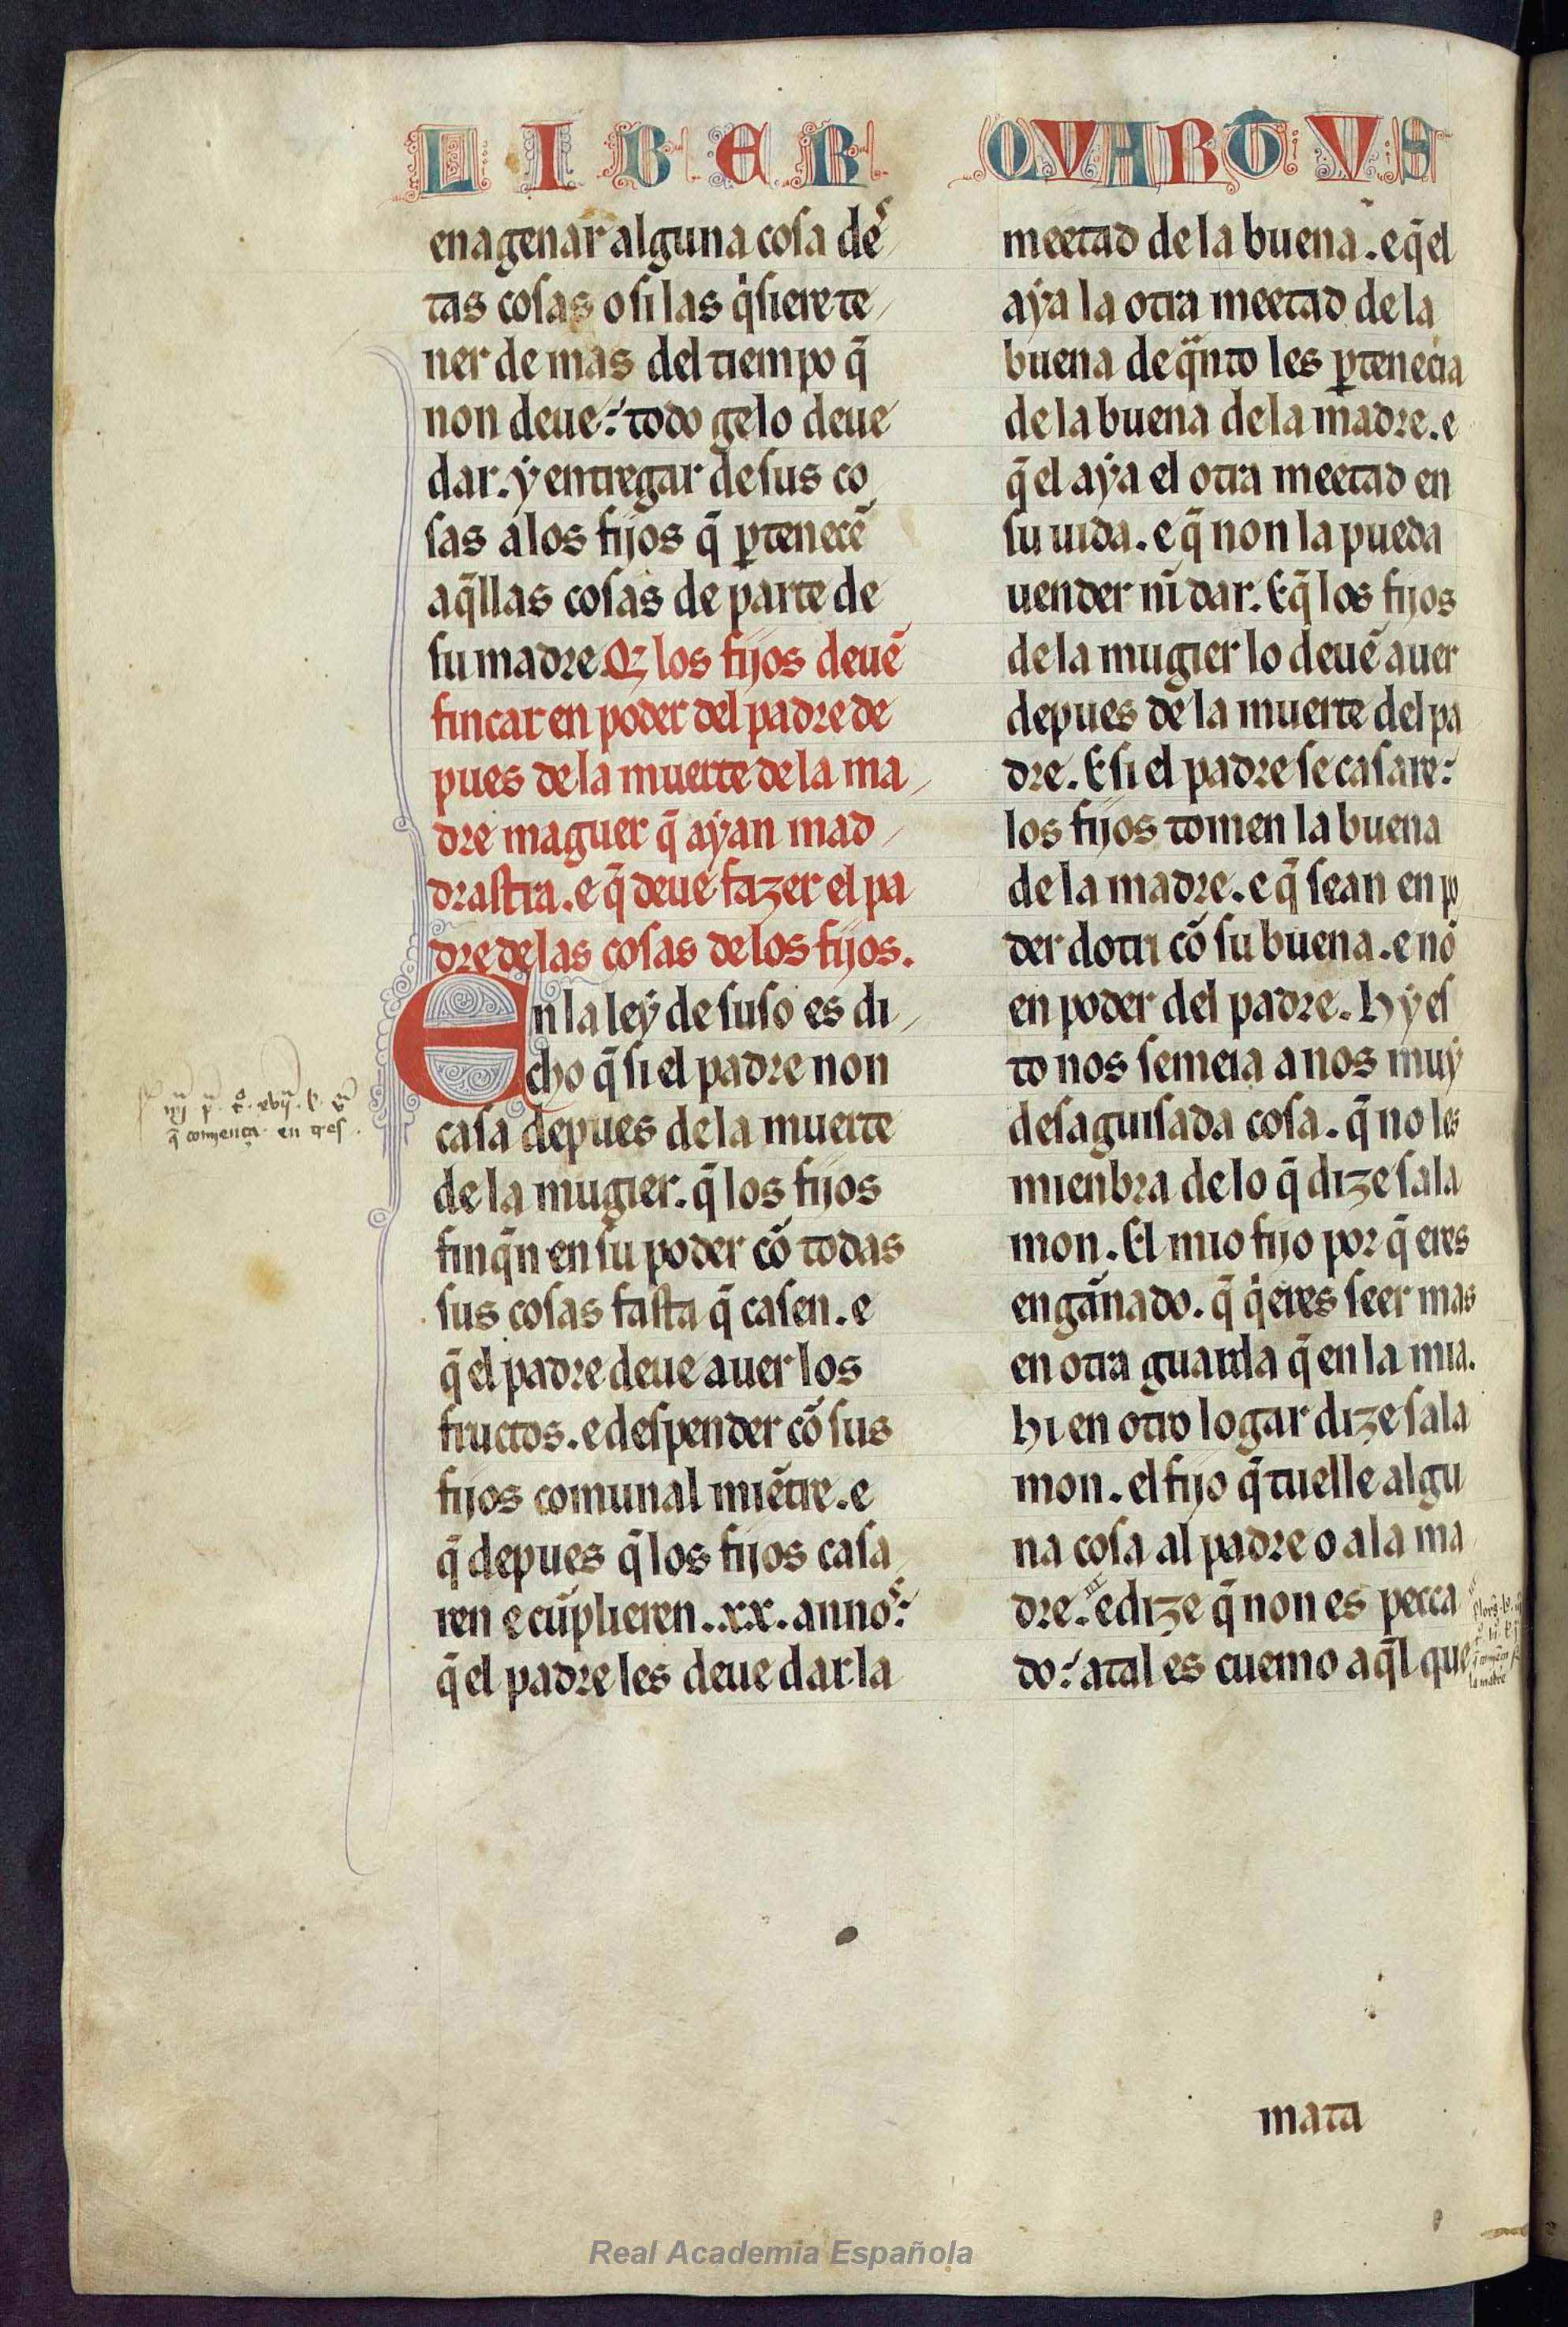 LIBER QVARTVS
enagenar alguna cosa des
tas cosas o si las q̇siere te
ner de mas del tiempo q̄
non deue: todo gelo deue
dar. ẏ entregar de sus co
sas a los fijos q̄ ꝑtenecē
aq̄llas cosas de parte de
su madre. Q los fijos deuē
fincar en poder del padre de
pues de la muerte de la ma
dre maguer q̄ aẏan mad
drastra. e q̄ deue fazer el pa
dre de las cosas de los fijos.
En la leẏ de suso es di
cho q̄ si el padre non
casa depues de la muerte
de la mugier. q̄ los fijos
finq̄n en su poder cō todas
sus cosas fasta q̄ casen. e
q̄ el padre deue auer los
fructos. e despender cō sus
fijos comunal miētre. e
q̄ depues q̄ los fijos casa
ren e cūplieren .xx. annos:
q̄ el padre les deue dar la
meetad de la buena. e q̄ el
aẏa la otra meetad de la
buena de q̄nto les ꝑtenecia
de la buena de la madre. e
q̄ el aẏa el otra meetad en
su uida. e q̄ non la pueda
uender nī dar. E q̄ los fijos
de la mugier lo deuē auer
depues de la muerte del pa
dre. E si el padre se casare:
los fijos tomen la buena
de la madre. e q̄ sean en po
der dotri cō su buena. e nō
en poder del padre. hẏ es
to nos semeia a nos muẏ
desaguisada cosa. q̄ no les
mienbra de lo q̄ dize sala
mon. El mio fijo por q̄ eres
engān̄ado. q̄ q̇eres seer mas
en otra guarda q̄ en la mia.
hi en otro logar dize sala
mon. el fijo q̄ tuelle algu
na cosa al padre o a la ma
dre. e dize q̄ non es pecca
do: atal es cuemo aq̄l que
q̄ comença en tres.
la madre
mata
Real Academia Española